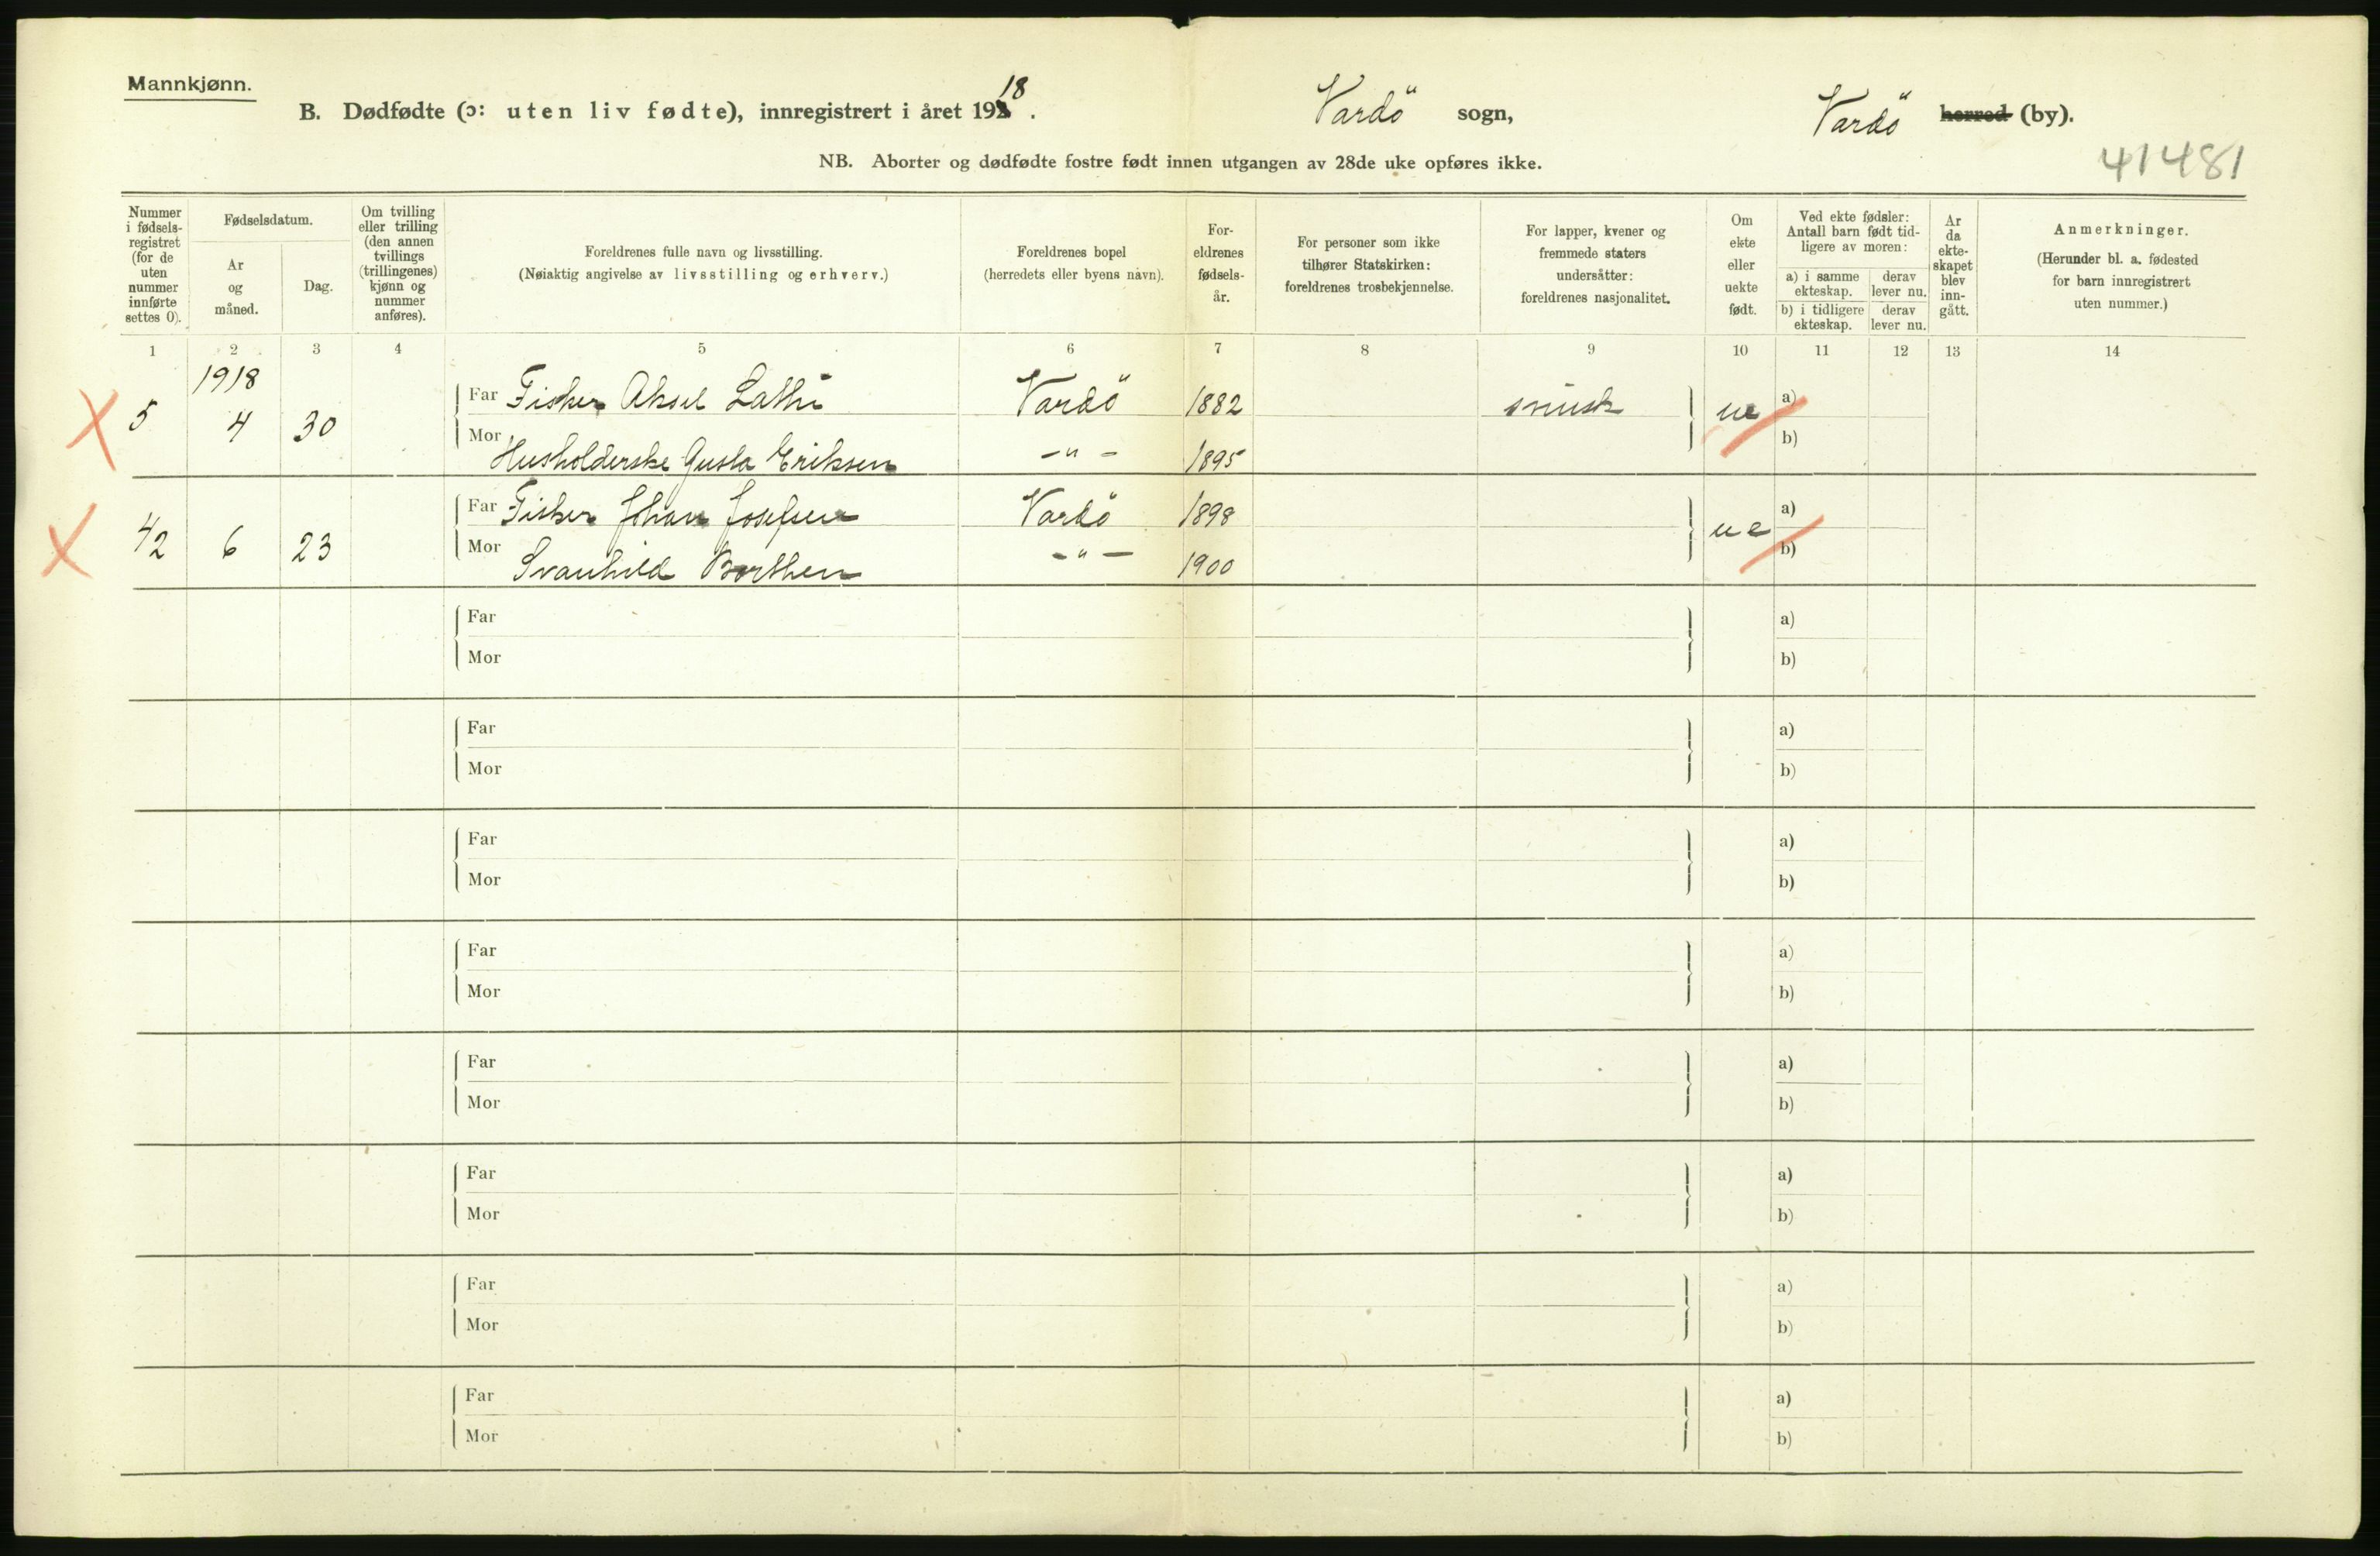 Mannkjønn.
B. Dødfødte (ɔ: uten liv fødte), innregistrert i året 1918. Vardö sogn, Vardö herred (by).
NB. Aborter og dødfødte fostre født innen utgangen av 28de uke opføres ikke.
41481
Nummer i fødsels-registret (for de uten nummer innførte settes 0).
Fødselsdatum.
Ar og måned.
Dag.
Om tvilling eller trilling (den annen tvillings (trillingenes) kjønn og nummer anføres).
Foreldrenes fulle navn og livsstilling.
(Nøiaktig angivelse av livsstilling og erhverv.)
Foreldrenes bopel
(herredets eller byens navn).
For-eldrenes fødsels-år.
For personer som ikke tilhører Statskirken: foreldrenes trosbekjennelse.
For lapper, kvener og fremmede staters undersåtter: foreldrenes nasjonalitet.
Om ekte eller uekte født.
Ved ekte fødsler: Antall barn født tid-ligere av moren:
a) i samme ekteskap. derav lever nu.
b) i tidligere ekteskap. derav lever nu.
Ar da ekte-skapet blev inn-gått.
Anmerkninger.
(Herunder bl. a. fødested for barn innregistrert uten nummer.)
1 2 3 4 5 6 7 8 9 10 11 12 13 14
1918
5 4 30 Far Fisker Aksel Vardö 1882 ue a)
Mor Husholderske Gusta Eriksen -"- 1895 b)
42 6 23 Far Fisker Johan Josefsen Vardö 1898 ue a)
Mor Svanhild Borthen -"- 1900 b)
Far a)
Mor b)
Far a)
Mor b)
Far a)
Mor b)
Far a)
Mor b)
Far a)
Mor b)
Far a)
Mor b)
Far a)
Mor b)
Far a)
Mor b)